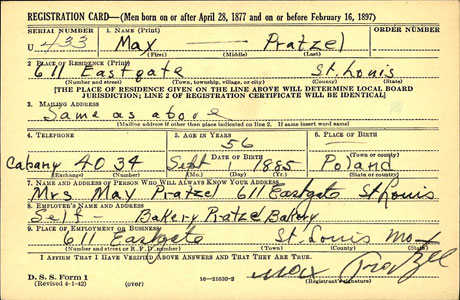 REGISTRATION CARD—(Men born on or after April 28, 1877 and on or before February 16, 1897)
SERIAL NUMBER 1. NAME (Print) ORDER NUMBER
U 433 Max — Pratzel
(First) (Middle) (Last)
2. PLACE OF RESIDENCE (Print)
611 Eastgate St. Louis
(Number and street) (Town, township, village, or city) (County) (State)
[THE PLACE OF RESIDENCE GIVEN ON THE LINE ABOVE WILL DETERMINE LOCAL BOARD
JURISDICTION; LINE 2 OF REGISTRATION CERTIFICATE WILL BE IDENTICAL]
3. MAILING ADDRESS
Same as above
[Mailing address if other than place indicated on line 2. If same insert word same]
4. TELEPHONE 5. AGE IN YEARS 6. PLACE OF BIRTH
56
DATE OF BIRTH (Town or county)
Cabany 4034 Sept 1 1885 Poland
(Exchange) (Number) (Mo.) (Day) (Yr.) (State or country)
7. NAME AND ADDRESS OF PERSON WHO WILL ALWAYS KNOW YOUR ADDRESS
Mrs May Pratzel 611 Eastgate St Louis
8. EMPLOYER'S NAME AND ADDRESS
Self — Bakery Pratzel Bakery
9. PLACE OF EMPLOYMENT OR BUSINESS
611 Eastgate St. Louis Mo
(Number and street or R. F. D. number) (Town) (County) (State)
I AFFIRM THAT I HAVE VERIFIED ABOVE ANSWERS AND THAT THEY ARE TRUE.
D. S. S. Form 1 Max Pratzel
(Revised 4-1-42) (over) 16—21630-2 (Registrant's signature)